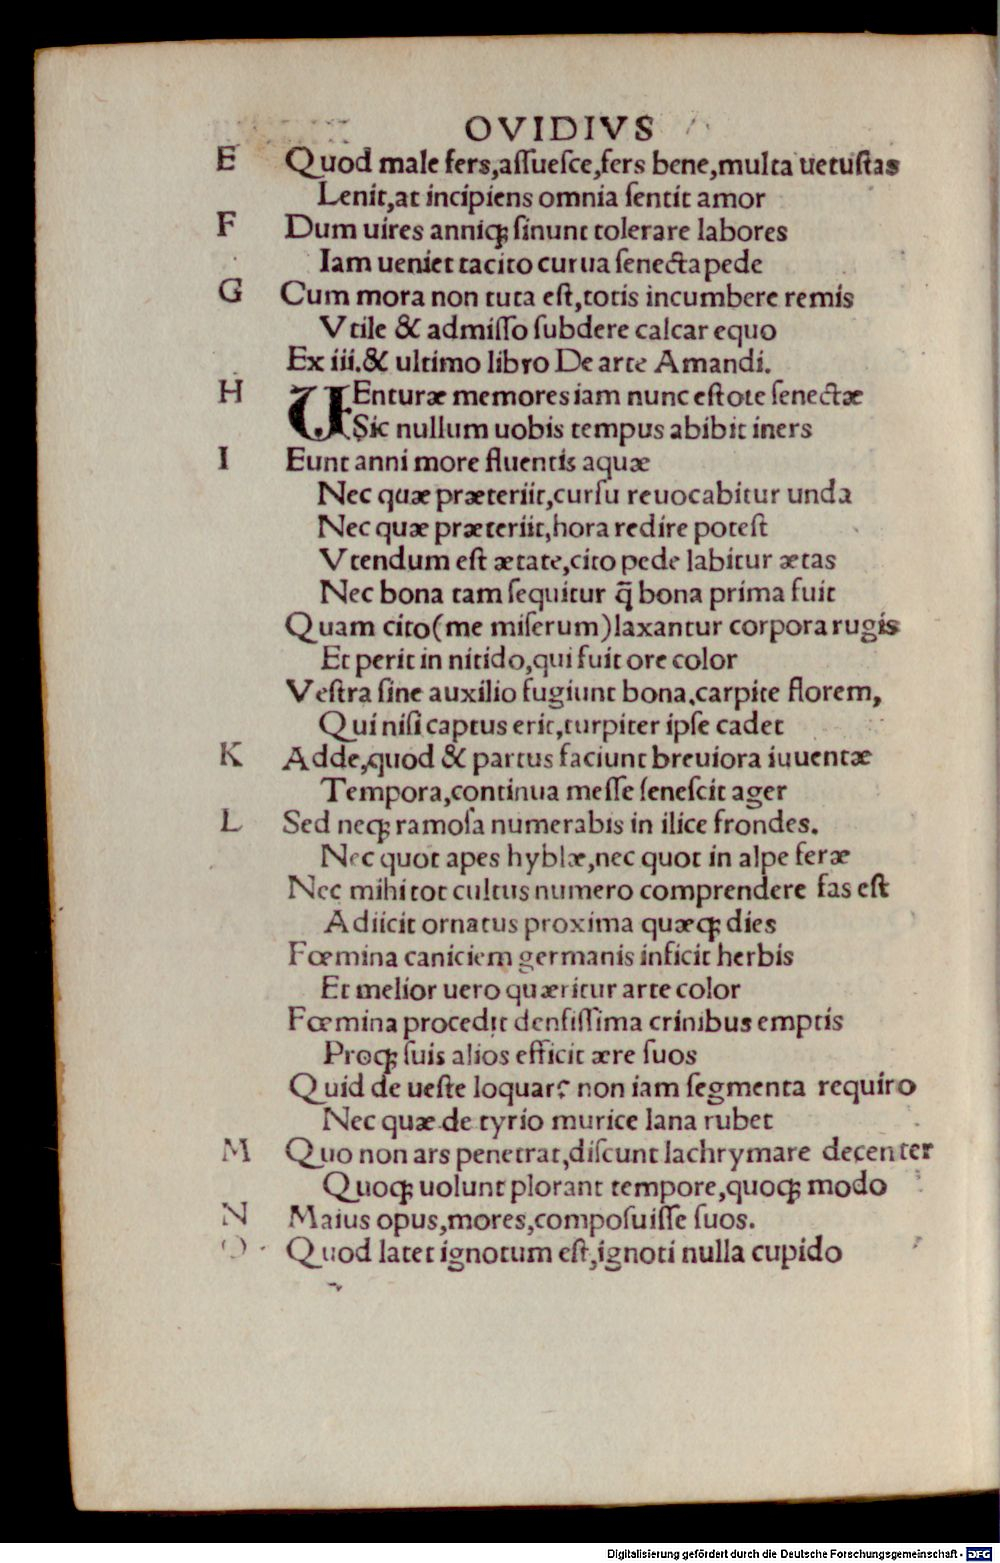 OVIDIVS
E Quod male fers,assuesce,fers bene,multa uetustas
Lenit,at incipiens omnia sentit amor
F Dum uires anniqꝫ sinunt tolerare labores
Iam ueniet tacito curua senecta pede
G Cum mora non tuta est,totis incumbere remis
Vtile & admisso subdere calcar equo
Ex iii.& ultimo libro De arte Amandi.
H VEnturæ memores iam nunc estote senectæ
Sic nullum uobis tempus abibit iners
I Eunt anni more fluentis aquæ
Nec quæ præteriit,cursu reuocabitur unda
Nec quæ præteriit,hora redire potest
Vtendum est ætate,cito pede labitur ætas
Nec bona tam sequitur q̃ bona prima fuit
Quam cito(me miserum)laxantur corpora rugis
Et perit in nitido,qui fuit ore color
Vestra sine auxilio fugiunt bona.carpite florem,
Qui nisi captus erit,turpiter ipse cadet
K Adde,quod & partus faciunt breuiora iuuentæ
Tempora,continua messe senescit ager
L Sed neqꝫ ramosa numerabis in ilice frondes.
Nec quot apes hyblæ,nec quot in alpe feræ
Nec mihi tot cultus numero comprendere fas est
Adiicit ornatus proxima quæqꝫ dies
Fœmina caniciem germanis inficit herbis
Et melior uero quæritur arte color
Fœmina procedit densissima crinibus emptis
Proqꝫ suis alios efficit ære suos
Quid de ueste loquar? non iam segmenta requiro
Nec quæ de tyrio murice lana rubet
M Quo non ars penetrat,discunt lachrymare decenter
Quoqꝫ uolunt plorant tempore,quoqꝫ modo
N Maius opus,mores,composuisse suos.
O Quod latet ignotum est,ignoti nulla cupido
Digitalisierung gefördert durch die Deutsche Forschungsgemeinschaft - DFG